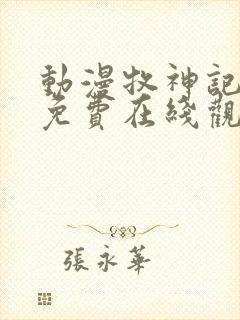 動漫牧神記
免費在綫觀
張永華